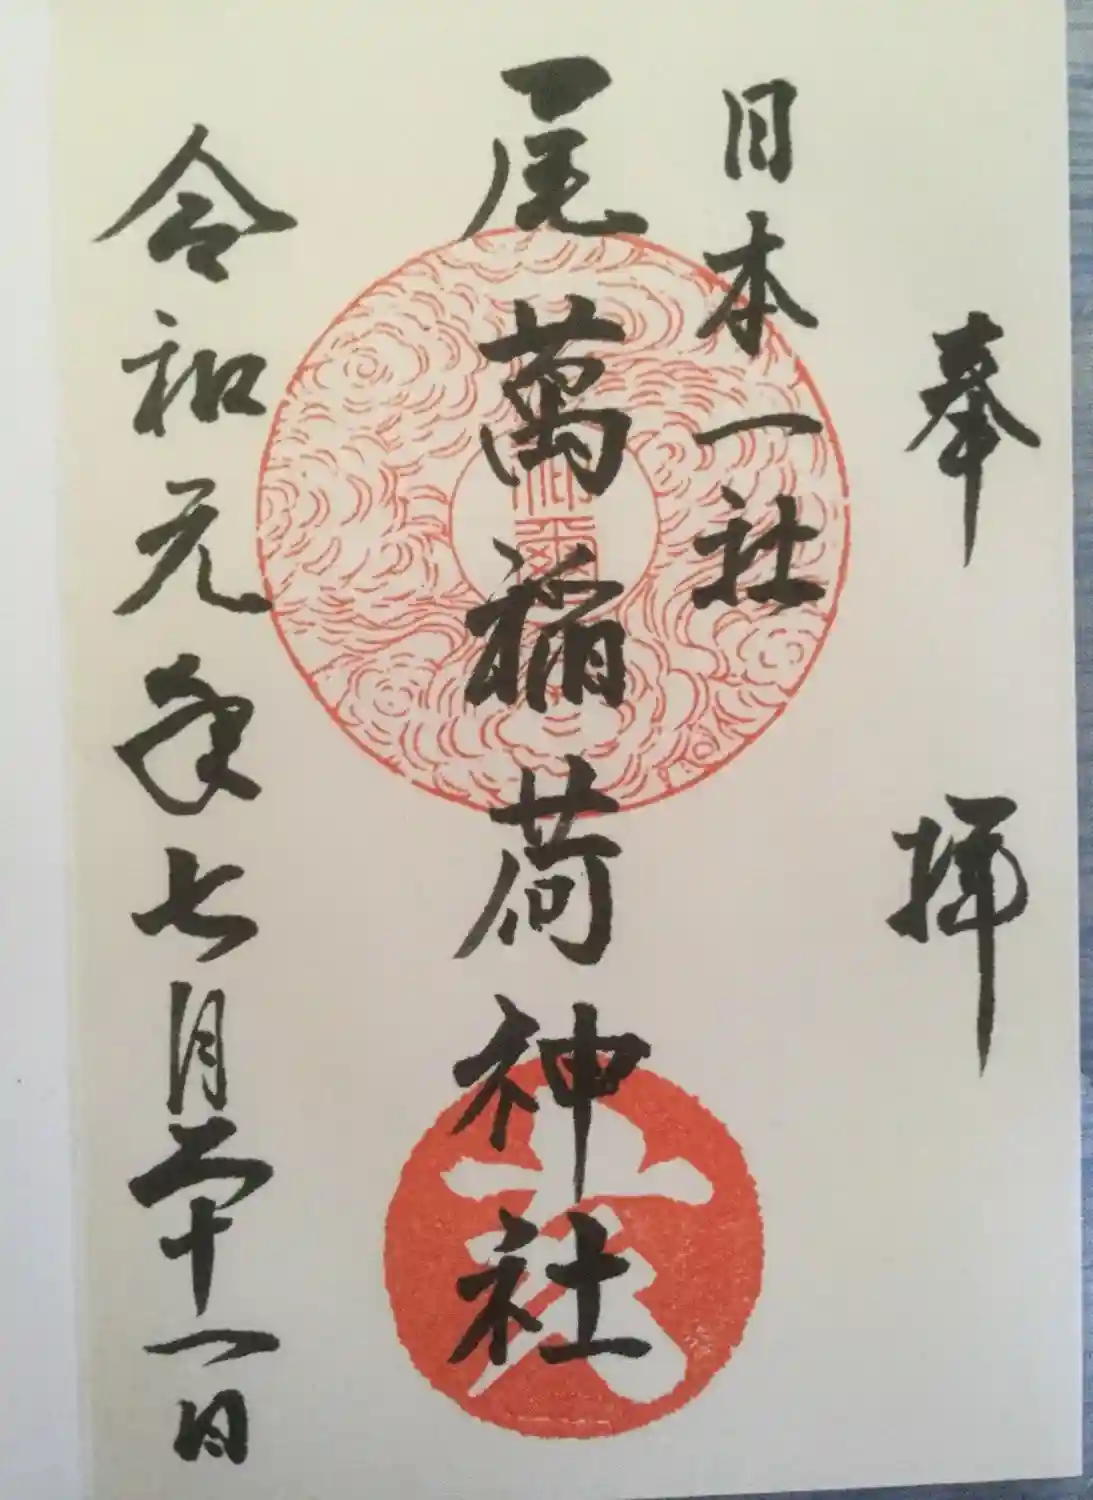 奉拝
日本一社
尾萬稲荷神社
令和元年七月二十一日